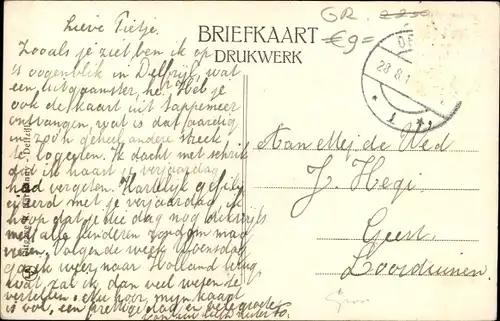 Lieve Pietje.
Zooals je ziet ben ik op
't oogenblik in Delfzijl, wat
een uitgaanster, he. Heb je
ook de kaart uit Sappemeer
ontvangen, wat is dat aardig
in zoo'n geheel andere streek
te logeeren. Ik dacht met schrik
dat ik haast je verjaardag
had vergeten. Hartelijk gefeli-
citeerd met je verjaardag, ik
hoop dat je die dag nog dikwijls
met alle kinderen
vieren. Volgende week Woensdag
ga ik weer naar Holland terug
wat zal ik dan veel weten te
vertellen. Nu hoor, mijn kaart
is vol, een prettige dag en vele groete
van uw
BRIEFKAART
DRUKWERK
GR.
€9=
28.8.1
1
Aan Mej. de Wed
J. Hegi.
Geest.
Loosduinen.